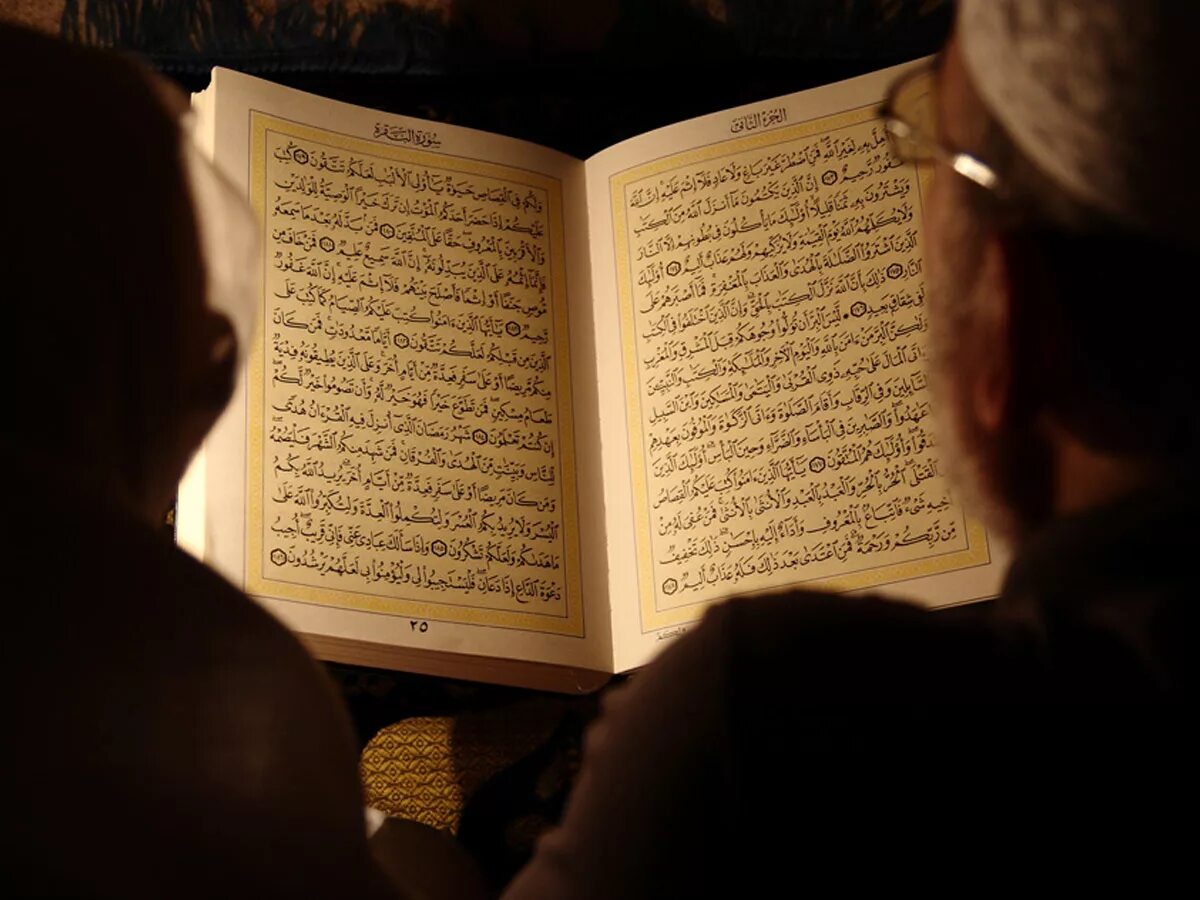 الجزء الثاني
أُهِلَّ بِهِۦ لِغَيْرِ ٱللَّهِ فَمَنِ ٱضْطُرَّ غَيْرَ بَاغٍ وَلَا عَادٍ فَلَآ إِثْمَ عَلَيْهِ إِنَّ ٱللَّهَ
غَفُورٌ رَّحِيمٌ ١٧٣ إِنَّ ٱلَّذِينَ يَكْتُمُونَ مَآ أَنزَلَ ٱللَّهُ مِنَ ٱلْكِتَٰبِ
وَيَشْتَرُونَ بِهِۦ ثَمَنًا قَلِيلًا أُو۟لَٰٓئِكَ مَا يَأْكُلُونَ فِى بُطُونِهِمْ إِلَّا ٱلنَّارَ
وَلَا يُكَلِّمُهُمُ ٱللَّهُ يَوْمَ ٱلْقِيَٰمَةِ وَلَا يُزَكِّيهِمْ وَلَهُمْ عَذَابٌ أَلِيمٌ ١٧٤ أُو۟لَٰٓئِكَ
ٱلَّذِينَ ٱشْتَرَوُا۟ ٱلضَّلَٰلَةَ بِٱلْهُدَىٰ وَٱلْعَذَابَ بِٱلْمَغْفِرَةِ فَمَآ أَصْبَرَهُمْ عَلَى
ٱلنَّارِ ١٧٥ ذَٰلِكَ بِأَنَّ ٱللَّهَ نَزَّلَ ٱلْكِتَٰبَ بِٱلْحَقِّ وَإِنَّ ٱلَّذِينَ ٱخْتَلَفُوا۟ فِى ٱلْكِتَٰبِ
شِقَاقٍۭ بَعِيدٍ ١٧٦ لَّيْسَ ٱلْبِرَّ أَن تُوَلُّوا۟ وُجُوهَكُمْ قِبَلَ ٱلْمَشْرِقِ وَٱلْمَغْرِبِ
وَلَٰكِنَّ ٱلْبِرَّ مَنْ ءَامَنَ بِٱللَّهِ وَٱلْيَوْمِ ٱلْـَٔاخِرِ وَٱلْمَلَٰٓئِكَةِ وَٱلْكِتَٰبِ وَٱلنَّبِيِّـۧنَ
ٱلْمَالَ عَلَىٰ حُبِّهِۦ ذَوِى ٱلْقُرْبَىٰ وَٱلْيَتَٰمَىٰ وَٱلْمَسَٰكِينَ وَٱبْنَ ٱلسَّبِيلِ
وَٱلسَّآئِلِينَ وَفِى ٱلرِّقَابِ وَأَقَامَ ٱلصَّلَوٰةَ وَءَاتَى ٱلزَّكَوٰةَ وَٱلْمُوفُونَ بِعَهْدِهِمْ
عَٰهَدُوا۟ وَٱلصَّٰبِرِينَ فِى ٱلْبَأْسَآءِ وَٱلضَّرَّآءِ وَحِينَ ٱلْبَأْسِ أُو۟لَٰٓئِكَ ٱلَّذِينَ
صَدَقُوا۟ وَأُو۟لَٰٓئِكَ هُمُ ٱلْمُتَّقُونَ ١٧٧ يَٰٓأَيُّهَا ٱلَّذِينَ ءَامَنُوا۟ كُتِبَ عَلَيْكُمُ ٱلْقِصَاصُ
ٱلْقَتْلَى ٱلْحُرُّ بِٱلْحُرِّ وَٱلْعَبْدُ بِٱلْعَبْدِ وَٱلْأُنثَىٰ بِٱلْأُنثَىٰ فَمَنْ عُفِىَ لَهُۥ مِنْ
أَخِيهِ شَىْءٌ فَٱتِّبَاعٌۢ بِٱلْمَعْرُوفِ وَأَدَآءٌ إِلَيْهِ بِإِحْسَٰنٍ ذَٰلِكَ تَخْفِيفٌ
مِّن رَّبِّكُمْ وَرَحْمَةٌ فَمَنِ ٱعْتَدَىٰ بَعْدَ ذَٰلِكَ فَلَهُۥ عَذَابٌ أَلِيمٌ ١٧٨
ولكم
سورة البقرة
وَلَكُمْ فِى ٱلْقِصَاصِ حَيَوٰةٌ يَٰٓأُو۟لِى ٱلْأَلْبَٰبِ لَعَلَّكُمْ تَتَّقُونَ ١٧٩ كُتِبَ
عَلَيْكُمْ إِذَا حَضَرَ أَحَدَكُمُ ٱلْمَوْتُ إِن تَرَكَ خَيْرًا ٱلْوَصِيَّةُ لِلْوَٰلِدَيْنِ
وَٱلْأَقْرَبِينَ بِٱلْمَعْرُوفِ حَقًّا عَلَى ٱلْمُتَّقِينَ ١٨٠ فَمَنۢ بَدَّلَهُۥ بَعْدَمَا سَمِعَهُۥ
فَإِنَّمَآ إِثْمُهُۥ عَلَى ٱلَّذِينَ يُبَدِّلُونَهُۥٓ إِنَّ ٱللَّهَ سَمِيعٌ عَلِيمٌ ١٨١ فَمَنْ خَافَ مِن
مُّوصٍ جَنَفًا أَوْ إِثْمًا فَأَصْلَحَ بَيْنَهُمْ فَلَآ إِثْمَ عَلَيْهِ إِنَّ ٱللَّهَ غَفُورٌ
رَّحِيمٌ ١٨٢ يَٰٓأَيُّهَا ٱلَّذِينَ ءَامَنُوا۟ كُتِبَ عَلَيْكُمُ ٱلصِّيَامُ كَمَا كُتِبَ عَلَى
ٱلَّذِينَ مِن قَبْلِكُمْ لَعَلَّكُمْ تَتَّقُونَ ١٨٣ أَيَّامًا مَّعْدُودَٰتٍ فَمَن كَانَ
مِنكُم مَّرِيضًا أَوْ عَلَىٰ سَفَرٍ فَعِدَّةٌ مِّنْ أَيَّامٍ أُخَرَ وَعَلَى ٱلَّذِينَ يُطِيقُونَهُۥ فِدْيَةٌ
طَعَامُ مِسْكِينٍ فَمَن تَطَوَّعَ خَيْرًا فَهُوَ خَيْرٌ لَّهُۥ وَأَن تَصُومُوا۟ خَيْرٌ لَّكُمْ
إِن كُنتُمْ تَعْلَمُونَ ١٨٤ شَهْرُ رَمَضَانَ ٱلَّذِىٓ أُنزِلَ فِيهِ ٱلْقُرْءَانُ هُدًى
لِّلنَّاسِ وَبَيِّنَٰتٍ مِّنَ ٱلْهُدَىٰ وَٱلْفُرْقَانِ فَمَن شَهِدَ مِنكُمُ ٱلشَّهْرَ فَلْيَصُمْهُ
وَمَن كَانَ مَرِيضًا أَوْ عَلَىٰ سَفَرٍ فَعِدَّةٌ مِّنْ أَيَّامٍ أُخَرَ يُرِيدُ ٱللَّهُ بِكُمُ
ٱلْيُسْرَ وَلَا يُرِيدُ بِكُمُ ٱلْعُسْرَ وَلِتُكْمِلُوا۟ ٱلْعِدَّةَ وَلِتُكَبِّرُوا۟ ٱللَّهَ عَلَىٰ
مَا هَدَىٰكُمْ وَلَعَلَّكُمْ تَشْكُرُونَ ١٨٥ وَإِذَا سَأَلَكَ عِبَادِى عَنِّى فَإِنِّى قَرِيبٌ أُجِيبُ
دَعْوَةَ ٱلدَّاعِ إِذَا دَعَانِ فَلْيَسْتَجِيبُوا۟ لِى وَلْيُؤْمِنُوا۟ بِى لَعَلَّهُمْ يَرْشُدُونَ ١٨٦
٢٥